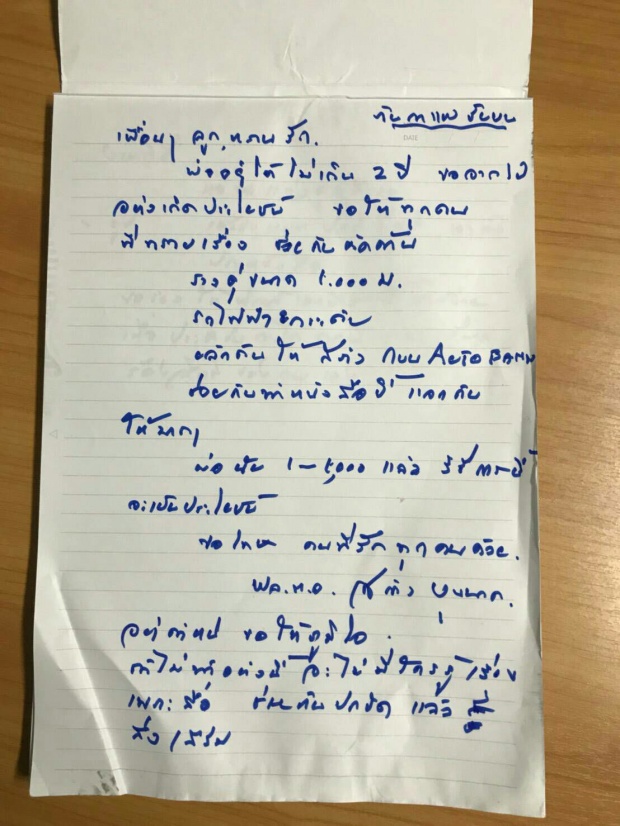 DATE
เพื่อนๆ ลูก หลาน รัก.
พ่ออยู่ได้ไม่เกิน 2 ปี ขอจากไป
อย่างเกิดประโยชน์ ขอให้ทุกคน
ที่ทราบเรื่อง ช่วยกัน
รางคู่ขนาด 1.000 ม.
รถไฟฟ้ายกระดับ
ผลักดันให้ วิ่ง บน AUTOBAHN
ช่วยกันทำหนังสือนี้ แจกกัน
ให้มากๆ
พ่อ 1 - 5,000 แล้ว วิธีการนี้
จะเป็นประโยชน์
ขอโทษ คนที่รักทุกคนด้วย.
พล.ท.อ.
อย่าตำหนิ ขอให้ภูมิใจ.
ถ้าไม่ทำอย่างนี้ จะไม่มีใครรู้เรื่อง
เพราะสื่อ ช่วยกันปกปิด แล้ว
ส่งเสริม